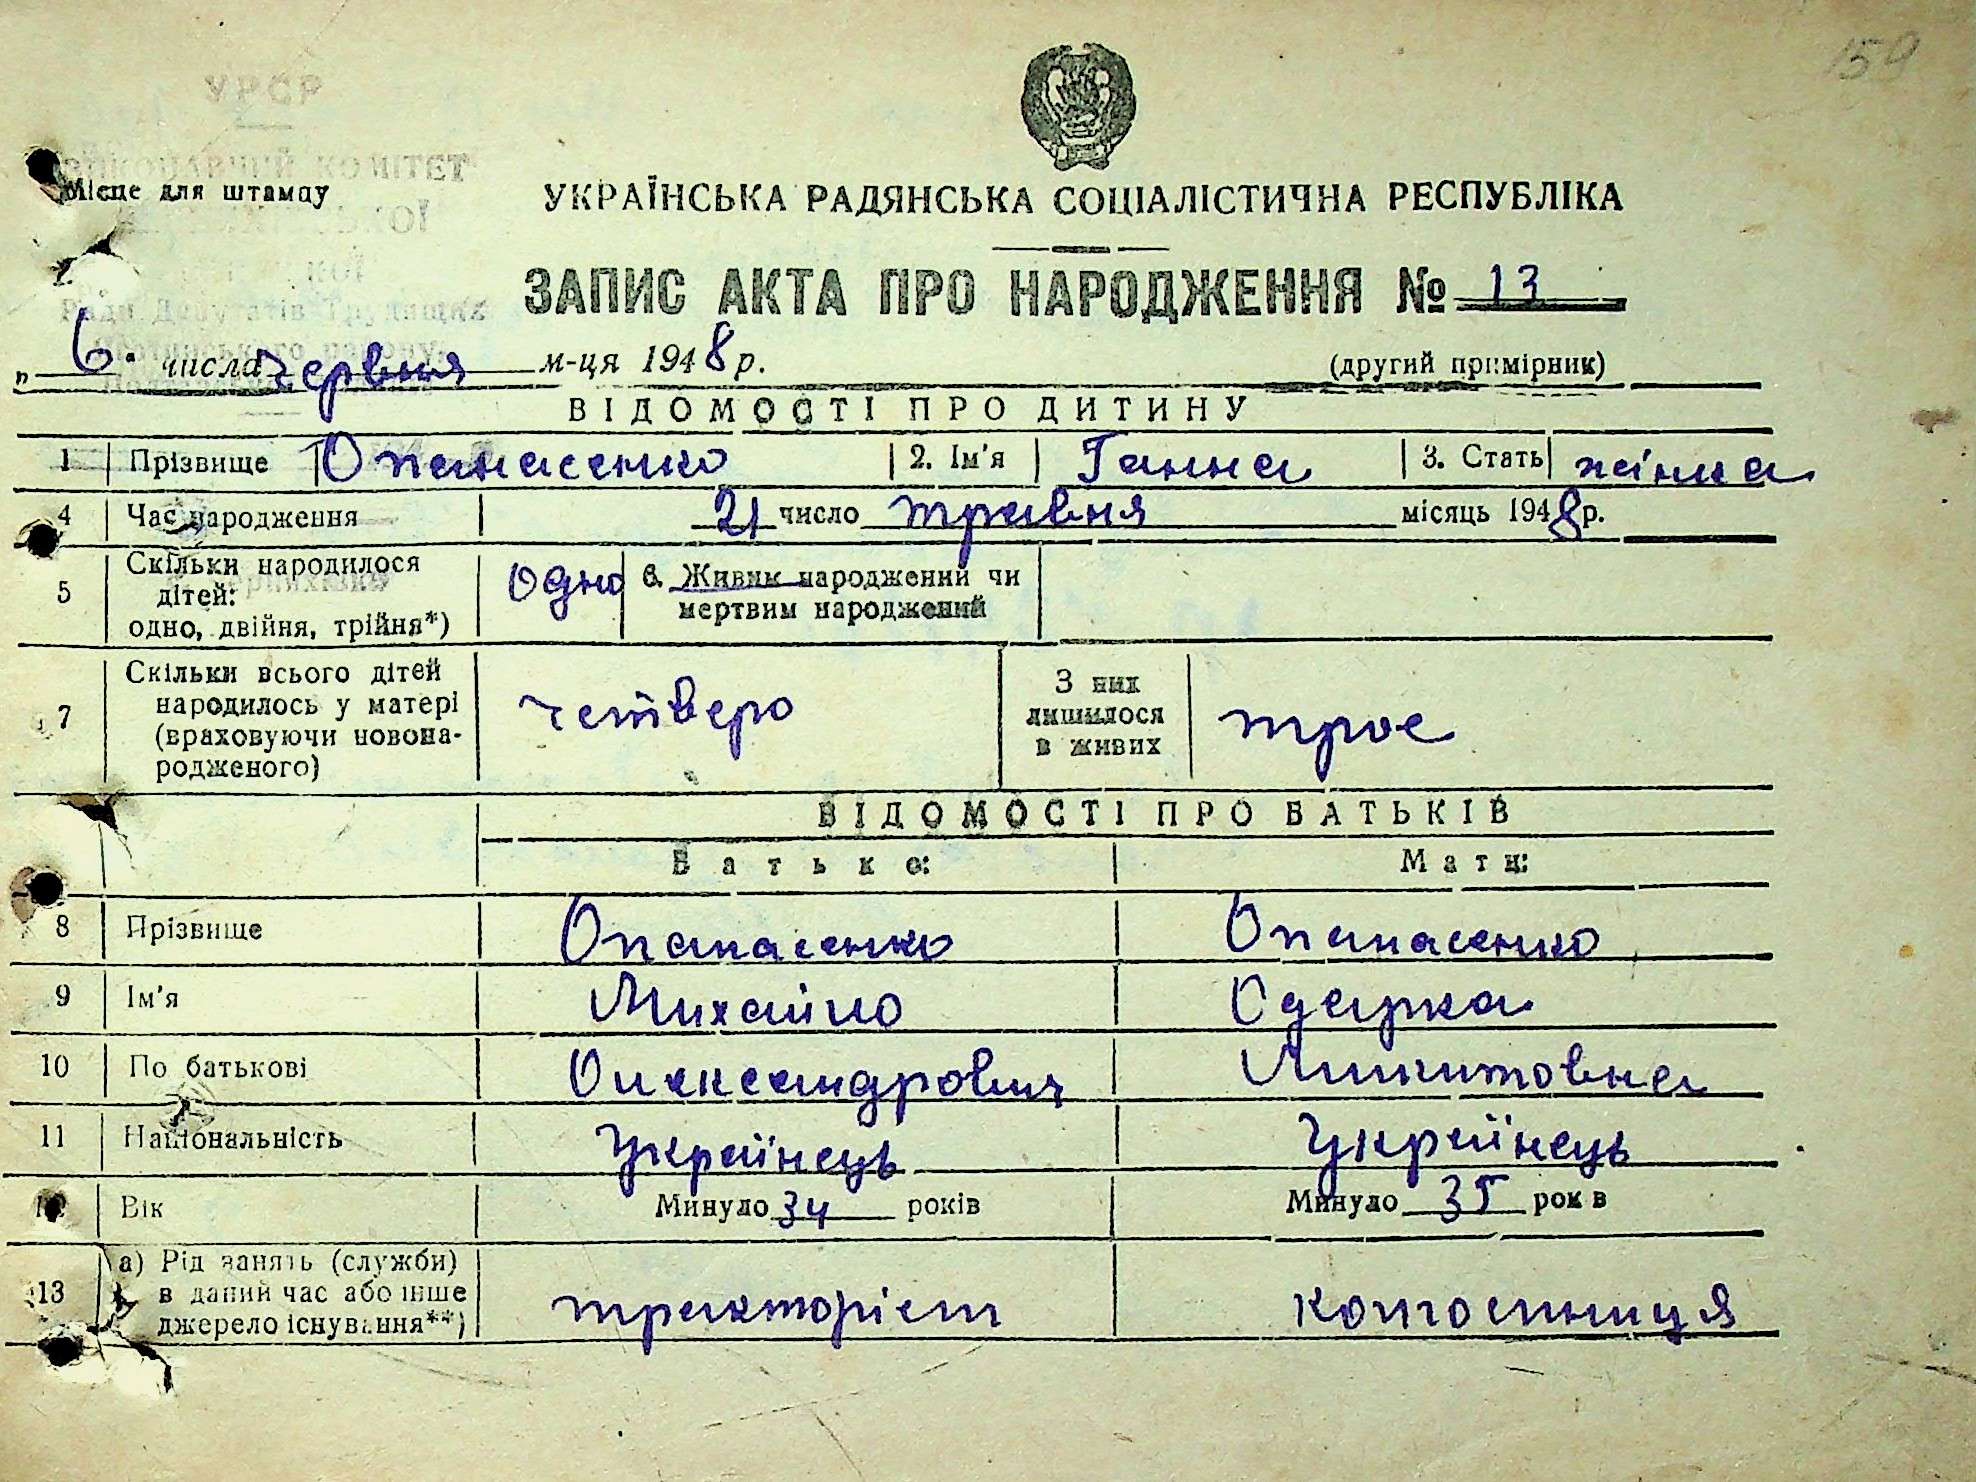 159
УРСР
КОМІТЕТ
Місце для штампу
УКРАЇНСЬКА РАДЯНСЬКА СОЦІАЛІСТИЧНА РЕСПУБЛІКА
Ради Депутатів Трудящих
ЗАПИС АКТА ПРО НАРОДЖЕННЯ № 13
„ 6 " числа червня м-ця 1948 р. (другий примірник)
ВІДОМОСТІ ПРО ДИТИНУ
1 Прізвище Опанасенко 2. Ім'я Ганна 3. Стать жінка
4 Час народження 21 число травня місяць 1948 р.
5 Скільки народилося дітей: одно, двійня, трійня*) одно 6. Живим народжений чи мертвим народжений
7 Скільки всього дітей народилось у матері (враховуючи новонародженого) четверо З них лишилося в живих троє
ВІДОМОСТІ ПРО БАТЬКІВ
Батько: Мати:
8 Прізвище Опанасенко Опанасенко
9 Ім'я Михайло Одарка
10 По батькові Олександрович Микитовна
11 Національність Українець Українець
12 Вік Минуло 34 років Минуло 35 років
13 а) Рід занять (служби) в даний час або інше джерело існування**) тракторіст колгоспниця